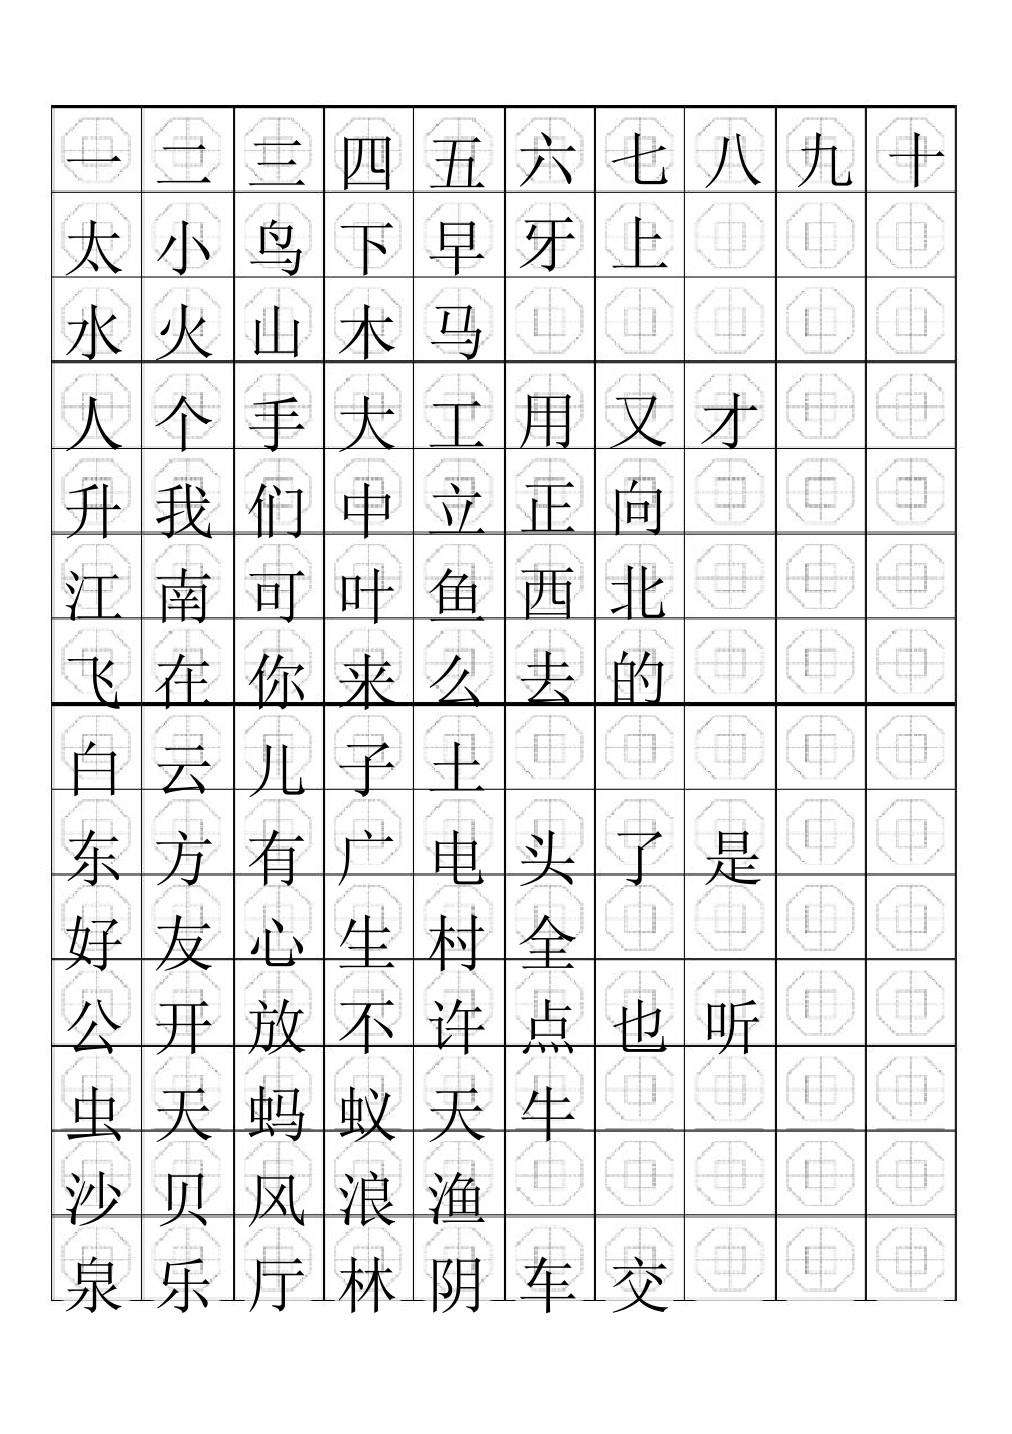 一 二 三 四 五 六 七 八 九 十
太 小 鸟 下 早 牙 上
水 火 山 木 马
人 个 手 大 工 用 又 才
升 我 们 中 立 正 向
江 南 可 叶 鱼 西 北
飞 在 你 来 么 去 的
白 云 儿 子 土
东 方 有 广 电 头 了 是
好 友 心 生 村 全
公 开 放 不 许 点 也 听
虫 天 蚂 蚁 天 牛
沙 贝 风 浪 渔
泉 乐 厅 林 阴 车 交